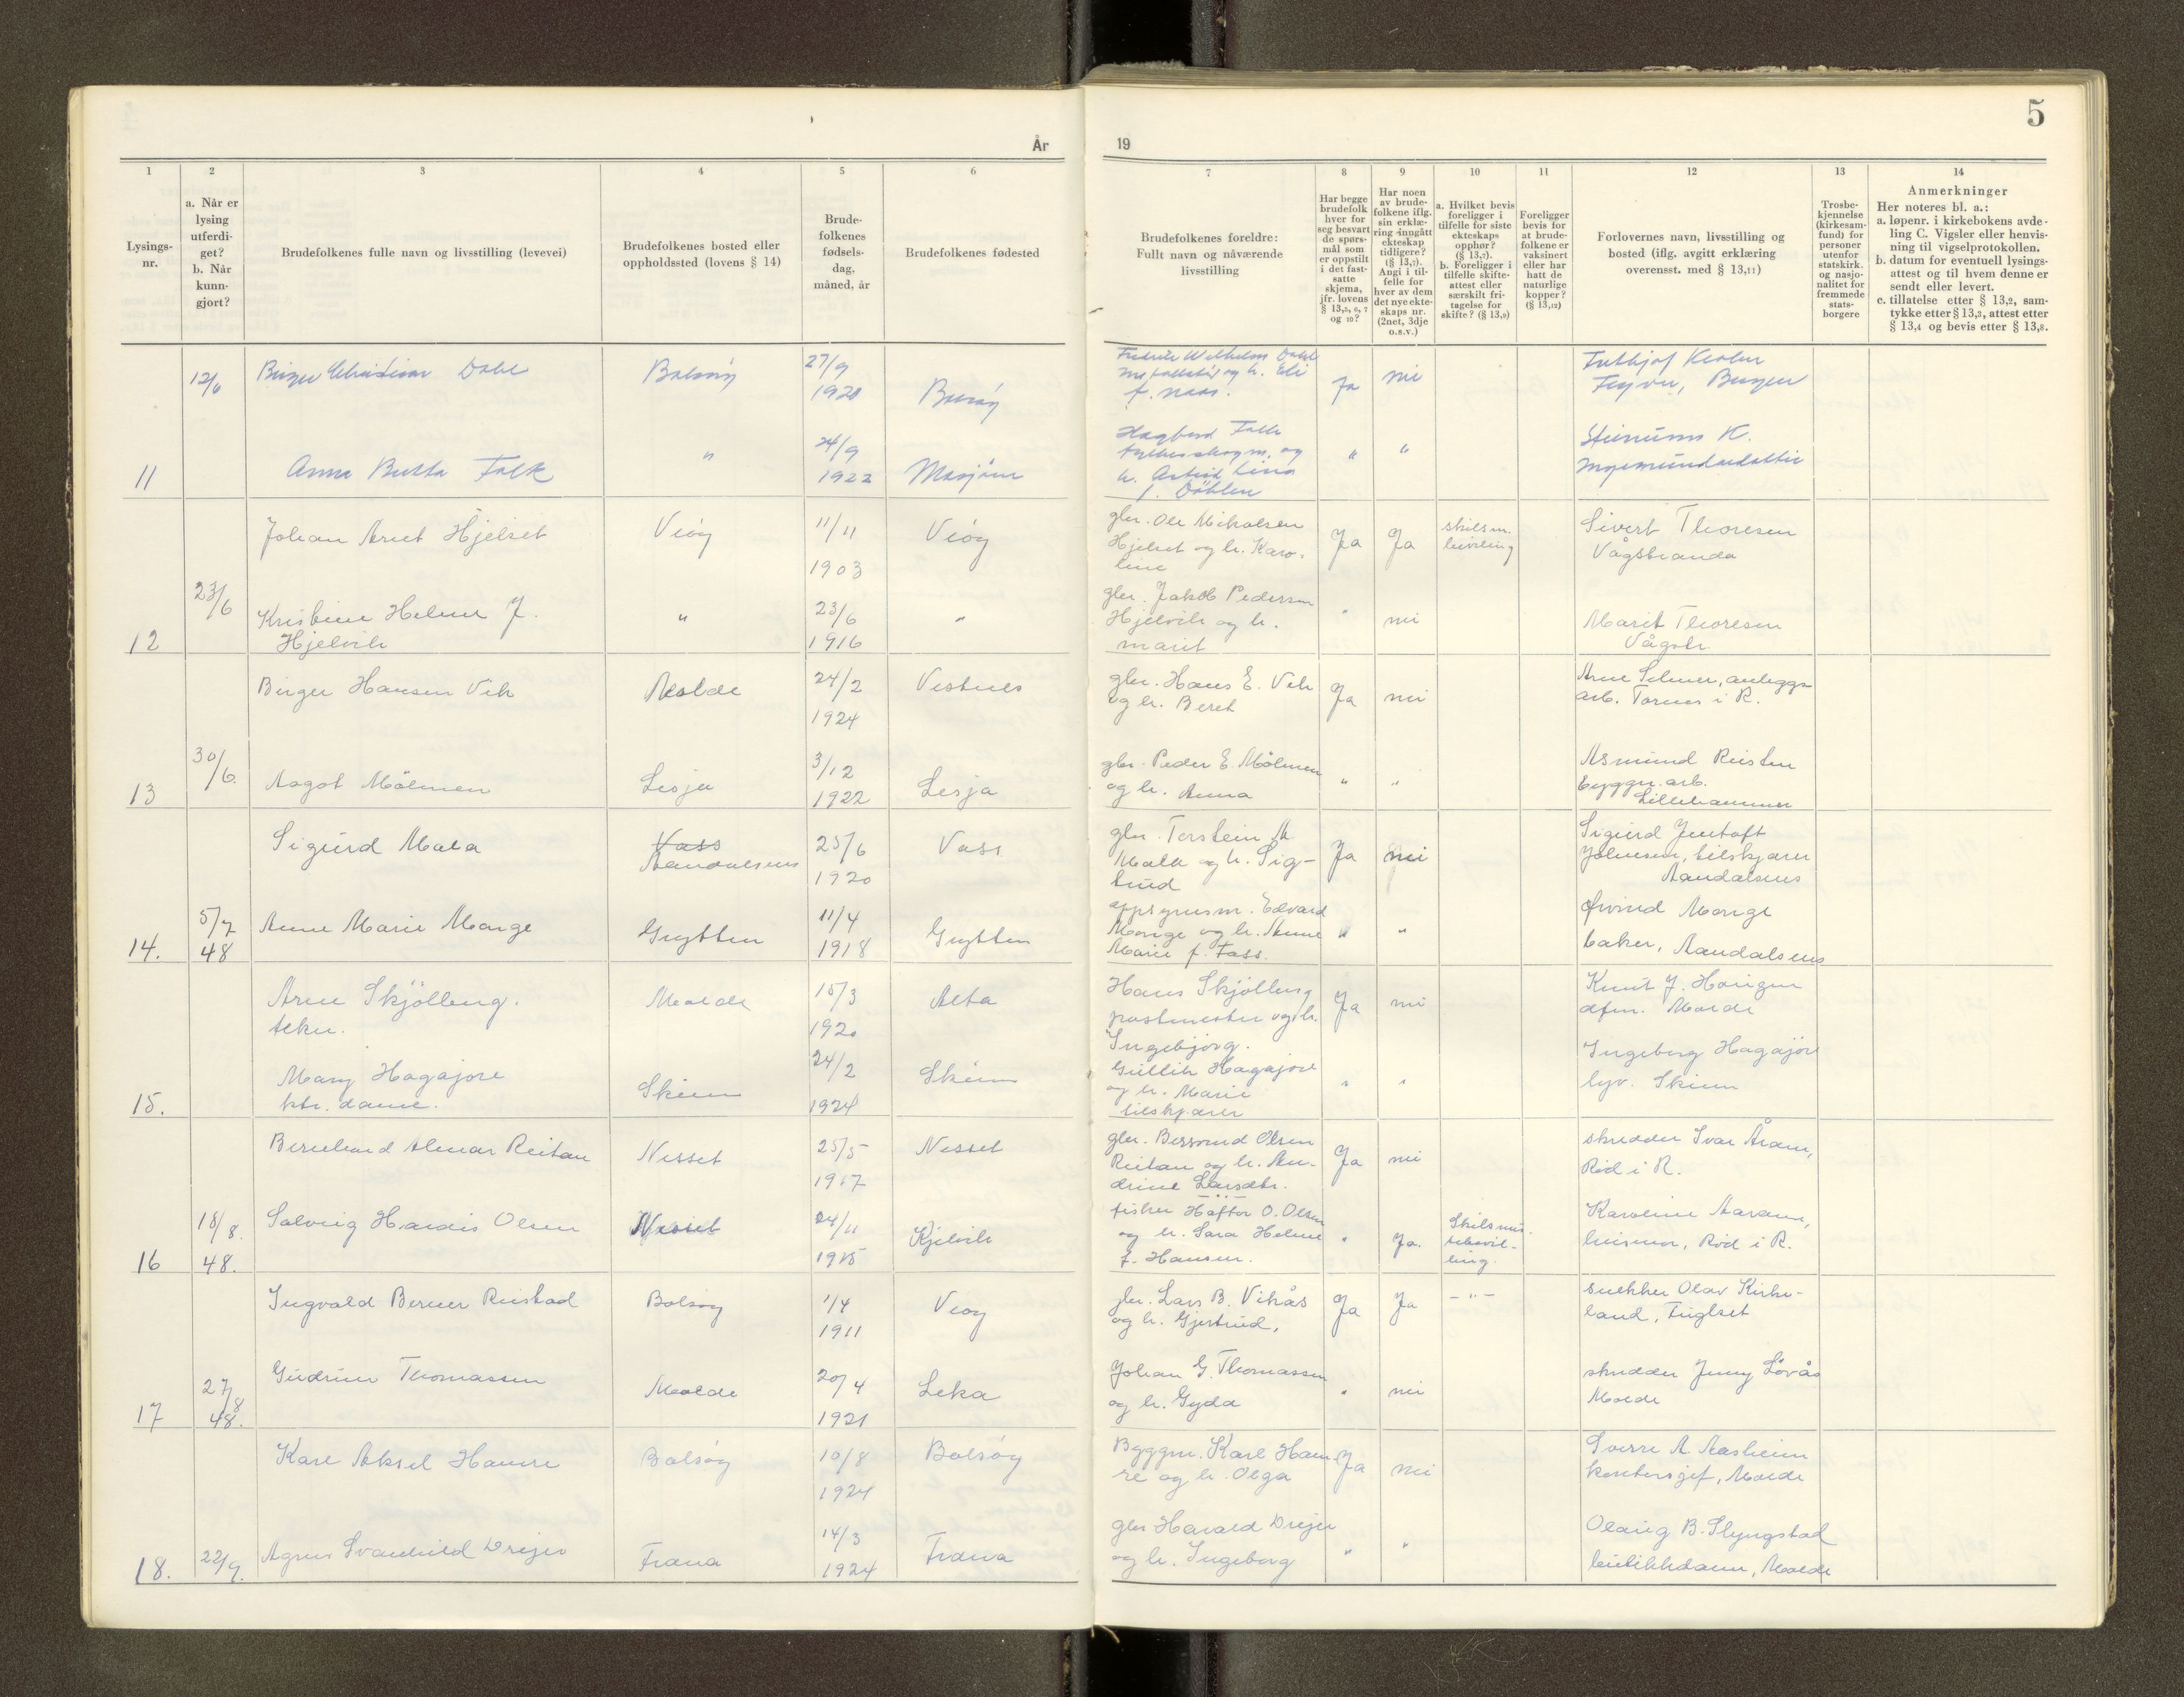 5
År
19
1
2
3
4
5
6
7
8
9
10
11
12
13
14
Lysings-
nr.
a. Når er
lysing
utferdi-
get?
b. Når
kunn-
gjort?
Brudefolkenes fulle navn og livsstilling (levevei)
Brudefolkenes bosted eller
oppholdssted (lovens § 14)
Brude-
folkenes
fødsels-
dag,
måned, år
Brudefolkenes fødested
Brudefolkenes foreldre:
Fullt navn og nåværende
livsstilling
Har begge
brudefolk
hver for
seg besvart
de spørs-
mål som
er oppstilt
i det fast-
satte
skjema,
jfr. lovens
§ 13,5, 6, 7
og 10?
Har noen
av brude-
folkene iflg.
sin erklæ-
ring inngått
ekteskap
tidligere?
(§ 13,7).
Angi i til-
felle for
hver av dem
det nye ekte-
skaps nr.
(2net, 3dje
o.s.v.)
a. Hvilket bevis
foreligger i
tilfelle for siste
ekteskaps
opphør?
(§ 13,7).
b. Foreligger i
tilfelle skifte-
attest eller
særskilt fri-
tagelse for
skifte? (§ 13,9)
Foreligger
bevis for
at brude-
folkene er
vaksinert
eller har
hatt de
naturlige
kopper?
(§ 13,12)
Forlovernes navn, livsstilling og
bosted (iflg. avgitt erklæring
overensst. med § 13,11)
Trosbe-
kjennelse
(kirkesam-
fund) for
personer
utenfor
statskirk.
og nasjo-
nalitet for
fremmede
stats-
borgere
Anmerkninger
Her noteres bl. a.:
a. løpenr. i kirkebokens avde-
ling C. Vigsler eller henvis-
ning til vigselprotokollen.
b. datum for eventuell lysings-
attest og til hvem denne er
sendt eller levert.
c. tillatelse etter § 13,2, sam-
tykke etter § 13,3, attest etter
§ 13,4 og bevis etter § 13,8.
12/6 Birger Christian Dahl Bolsøy 27/9
1920
Fredrik Wilhelm Dahl
og h. Eli
f. Naas.
Ja nei
Bergen
11 Anna Butta Falk " 24/9
1922 Mosjøen
Hagbard Falk
og
h. Astrid Lina
f. Döhlen
" "
Steinunn K.
Ingemundardottir
12 23/6
Johan Arnt Hjelset Veöy 11/11
1903 Veöy
gbr. Ole Mikalsen
Hjelset og h. Karo-
line
Ja Ja skilsm.
bevilling
Sivert Thoresen
Vågstranda
Kristine Helene J.
Hjelvik " 23/6
1916 "
gbr. Jakob Pedersen
Hjelvik og h.
Marit
" nei
Marit Thoresen
Vågstr.
13 30/6
Birger Hansen Vik Molde 24/2
1924 Vestnes
gbr. Hans E. Vik
og h. Beret
Ja nei
Arne Selmer, anleggs
arb. Tornes i R.
Aagot Mölmen Lesja 3/12
1922 Lesja
gbr. Peder E. Mölmen
og h. Anna
" "
Asmund Reisten
byggn. arb.
Lillehammer
14. 5/7
48
Sigurd Mala Voss
Aandalsnes 25/6
1920 Voss
gbr. Torstein M
Mala og h. Sig-
trud
Ja nei
Sigurd Jentoft
Johnsen, bilskjører
Aandalsnes
Anne Marie Monge Grytten 11/4
1918 Grytten
oppsynsm. Edvard
Monge og h. Anne
Marie f. Fass.
" "
Øivind Monge
baker, Aandalsnes
15.
Arne Skjölberg.
tekn. Molde 15/3
1920 Alta
Hans Skjölberg
postmester og h.
Ingebjörg.
Ja nei
Knut J. Haugen
dfm. Molde
Mary Hagajore
ktr. dame. Skien 24/2
1924 Skien
Gullik Hagajore
og h. Marie
bilskjører
" "
Ingeborg Hagajore
Skien
16 18/8.
48.
Bernhard Almar Reitan Nesset 25/5
1917 Nesset
gbr. Bersvend Olsen
Reitan og h. An-
drine Larsdtr.
Ja nei
skredder Ivar Åram,
Röd i R.
Solveig Hardis Olsen Nesset 24/11
1915 Kjelvik
fisker Haftor O. Olsen
og h. Sara Helene
f. Hansen.
" Ja. Skilsmis
sebevil-
ling.
Karoline Aaram,
husmor, Röd i R.
17 27/8
48.
Ingvald Berner Reistad Bolsöy 1/4
1911 Veöy
gbr. Lars B. Vikås
og h. Gjertrud,
Ja Ja - " -
snekker Olav Kirke-
land, Fuglset
Gudrun Thomassen Molde 20/4
1921 Leka
Johan G. Thomassen
og h. Gyda
" nei
skredder Jenny Lövås
Molde
18. 22/9.
Kåre Aksel Hamre Bolsöy 10/8
1924 Bolsöy
Byggm. Karl Ham-
re og h. Olga
Ja nei
Sverre A. Aasheim
kontorsjef, Molde
Agnes Svanhild Drejer Fræna 14/3
1924 Fræna
gbr Harald Drejer
og h. Ingeborg
" "
Olaug B. Slyngstad
butikkdame, Molde